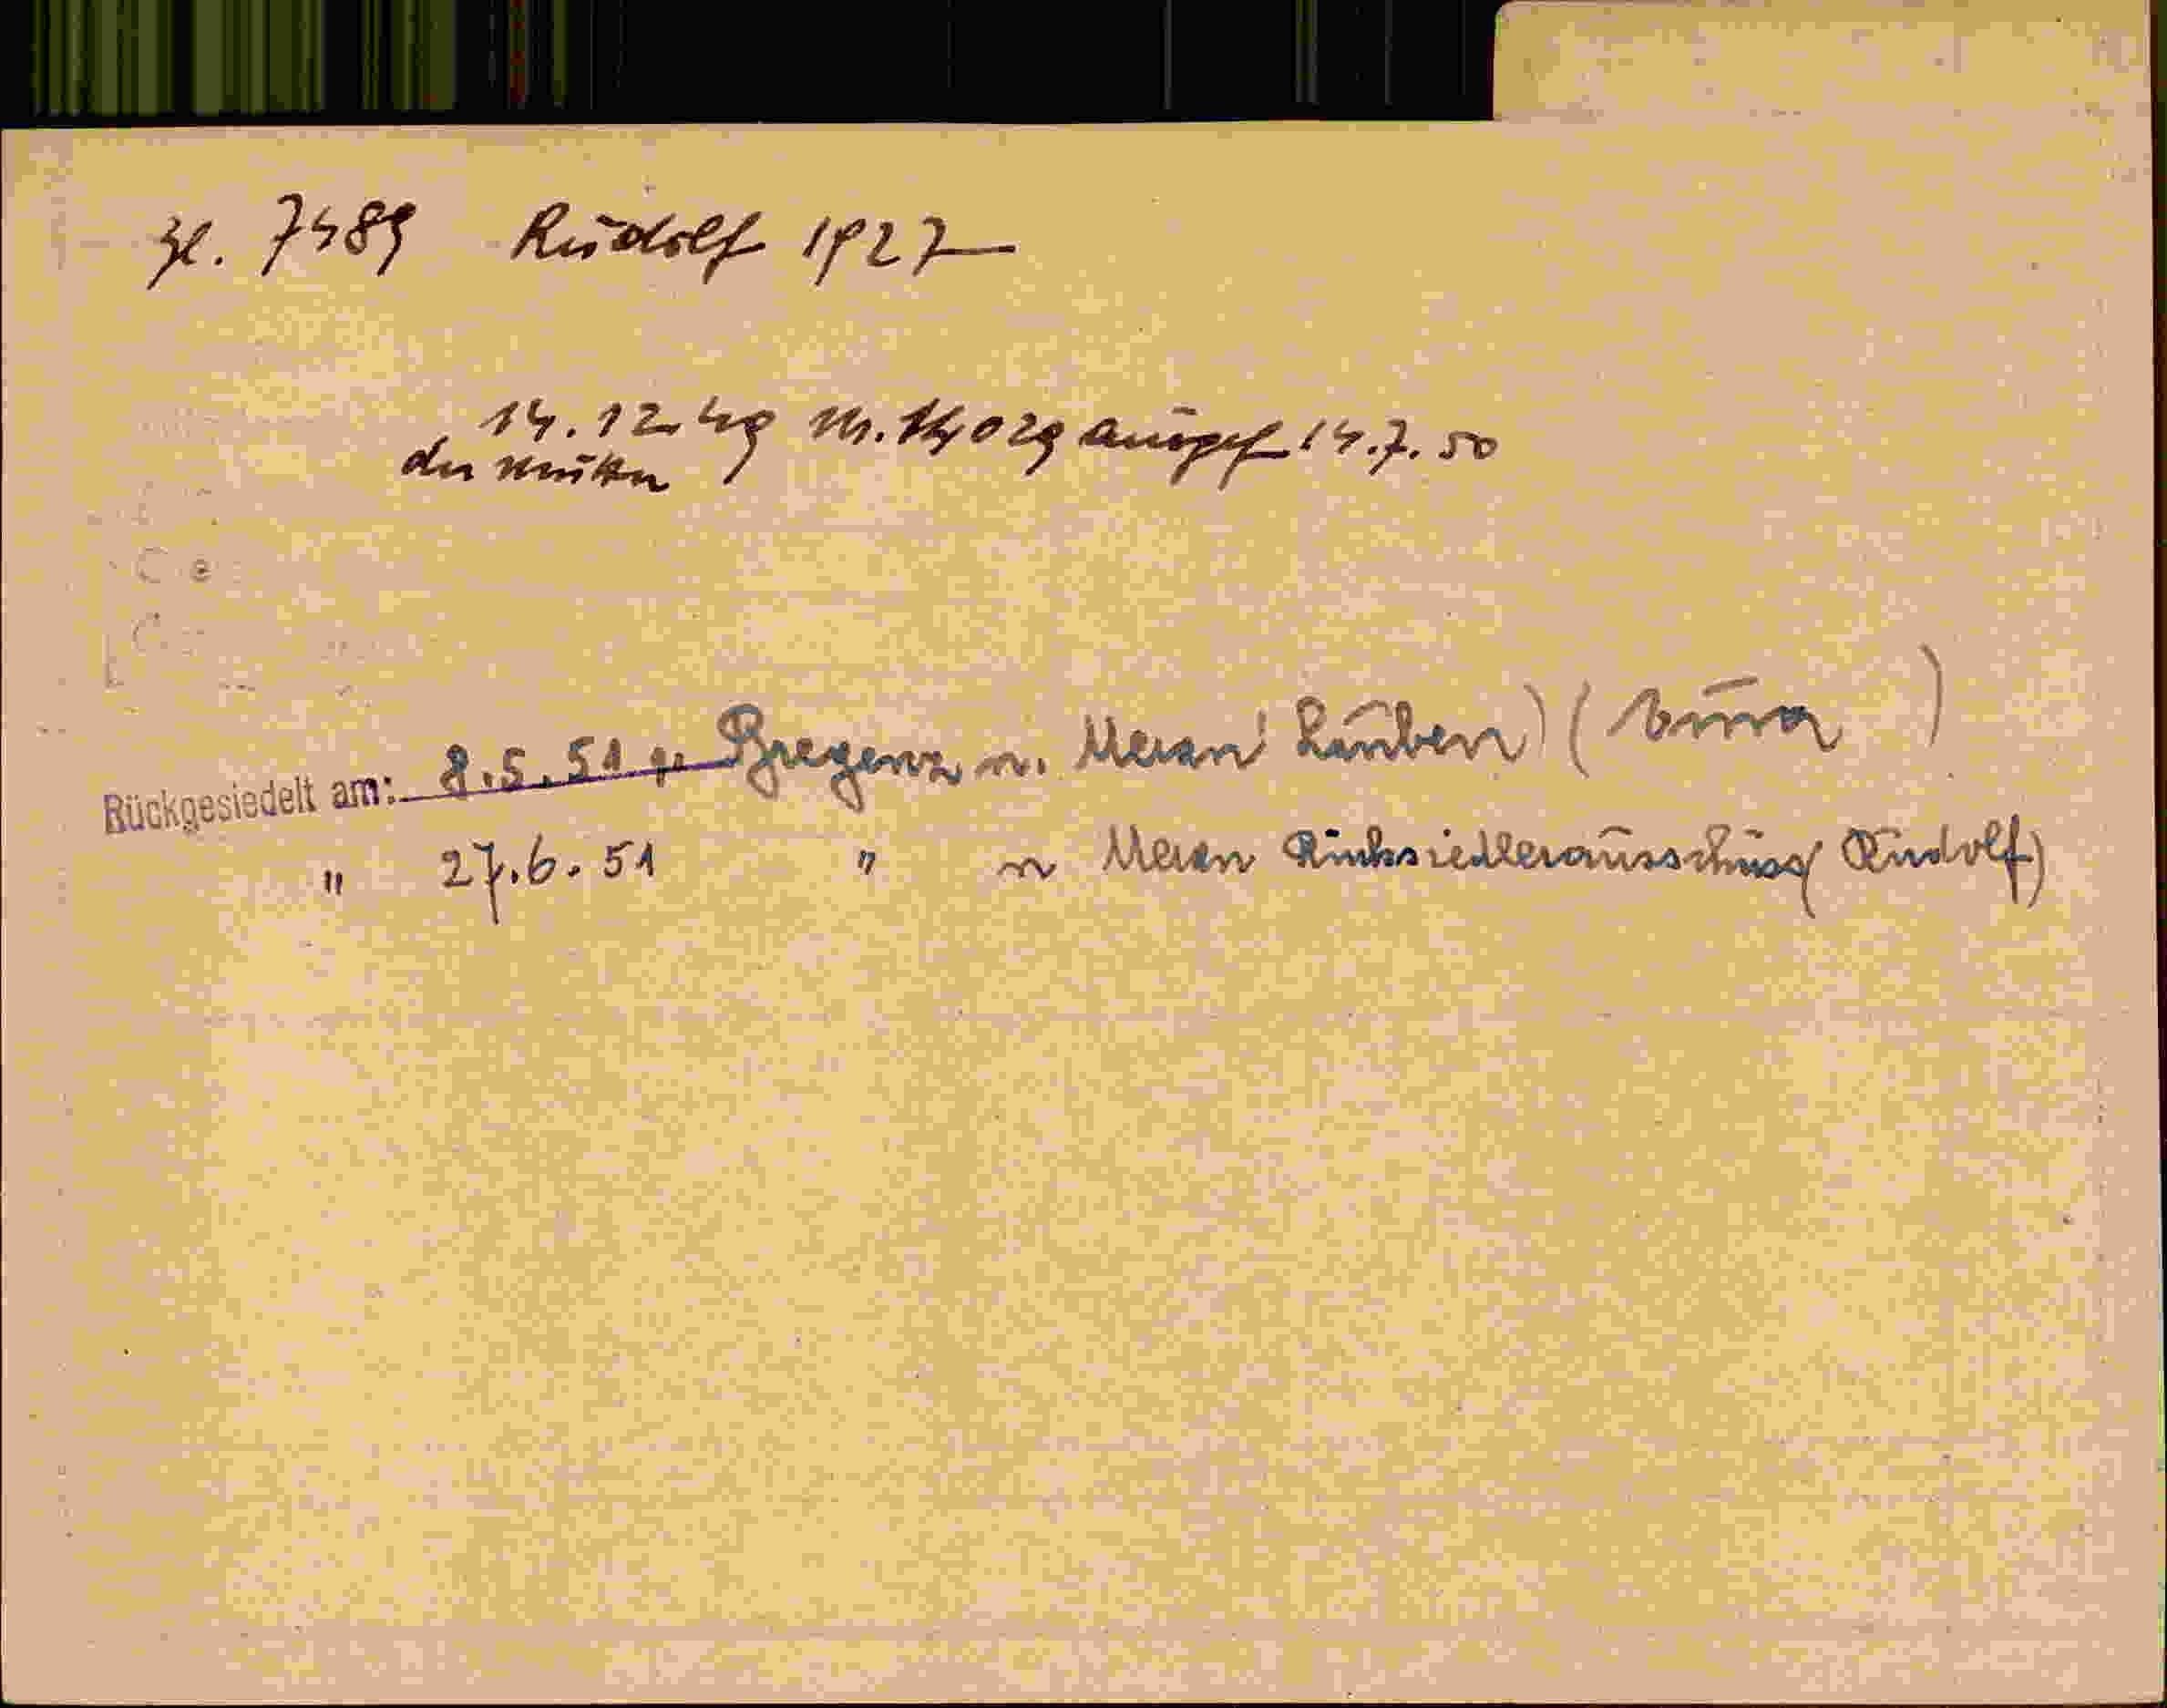 Zl. 7489 Rudolf 1927
14.12.49 N. 14029 ausgef 14.7.50
der Mutter
Rückgesiedelt am: 8.5.51 Bregenz n. Meran Lauben) ( )
" 27.6.51 " n Meran Rücksiedlerausschuss (Rudolf)